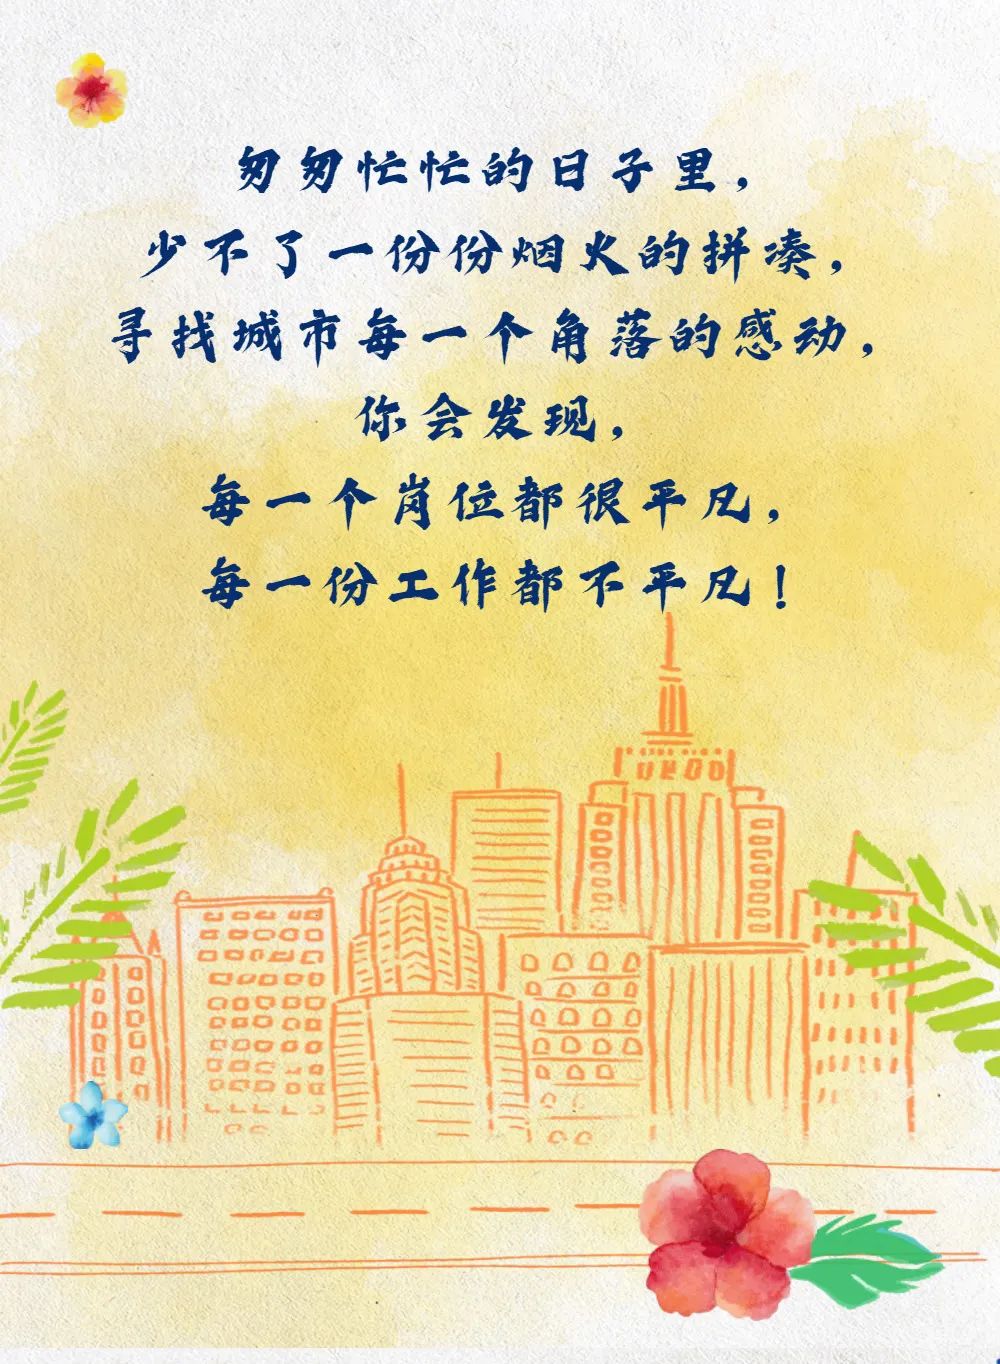 匆匆忙忙的日子里，
少不了一份份烟火的拼凑，
寻找城市每一个角落的感动，
你会发现，
每一个岗位都很平凡，
每一份工作都不平凡！